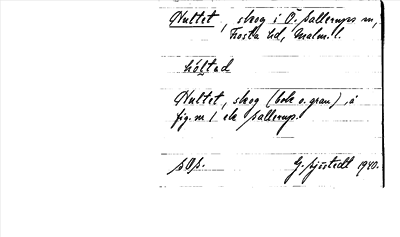 Hultet, skog i Ö. Sallerups sn,
Frosta hd, Malm. l.
hòltad
Hultet, skog (bok o. gran), å
fig. nr 1 ek Sallerup.
sOs.
G. Sjöstedt 1940.